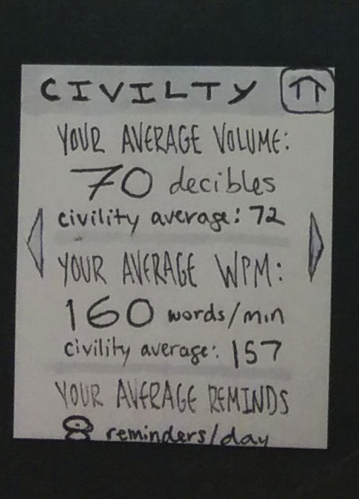 CIVILTY
YOUR AVERAGE VOLUME:
70 decibles
civility average: 72
YOUR AVERAGE WPM:
160 words/min
civility average: 157
YOUR AVERAGE REMINDS
8 reminders/day